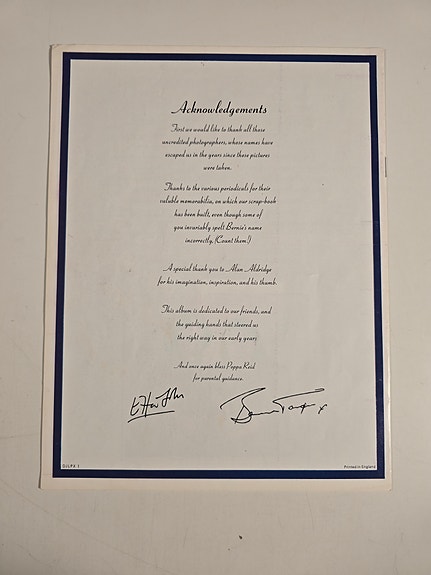 Acknowledgements
First we would like to thank all those
uncredited photographers, whose names have
escaped us in the years since these pictures
were taken.
Thanks to the various periodicals for their
valuable memorabilia, on which our scrap-book
has been built, even though some of
you invariably spelt Bernie's name
incorrectly, (Count them!)
A special thank you to Alan Aldridge
for his imagination, inspiration, and his thumb.
This album is dedicated to our friends, and
the guiding hands that steered us
the right way in our early years
And once again bless Poppa Reid
for parental guidance.
Elton John
Bernie Taupin x
DJLPX 1
Printed in England